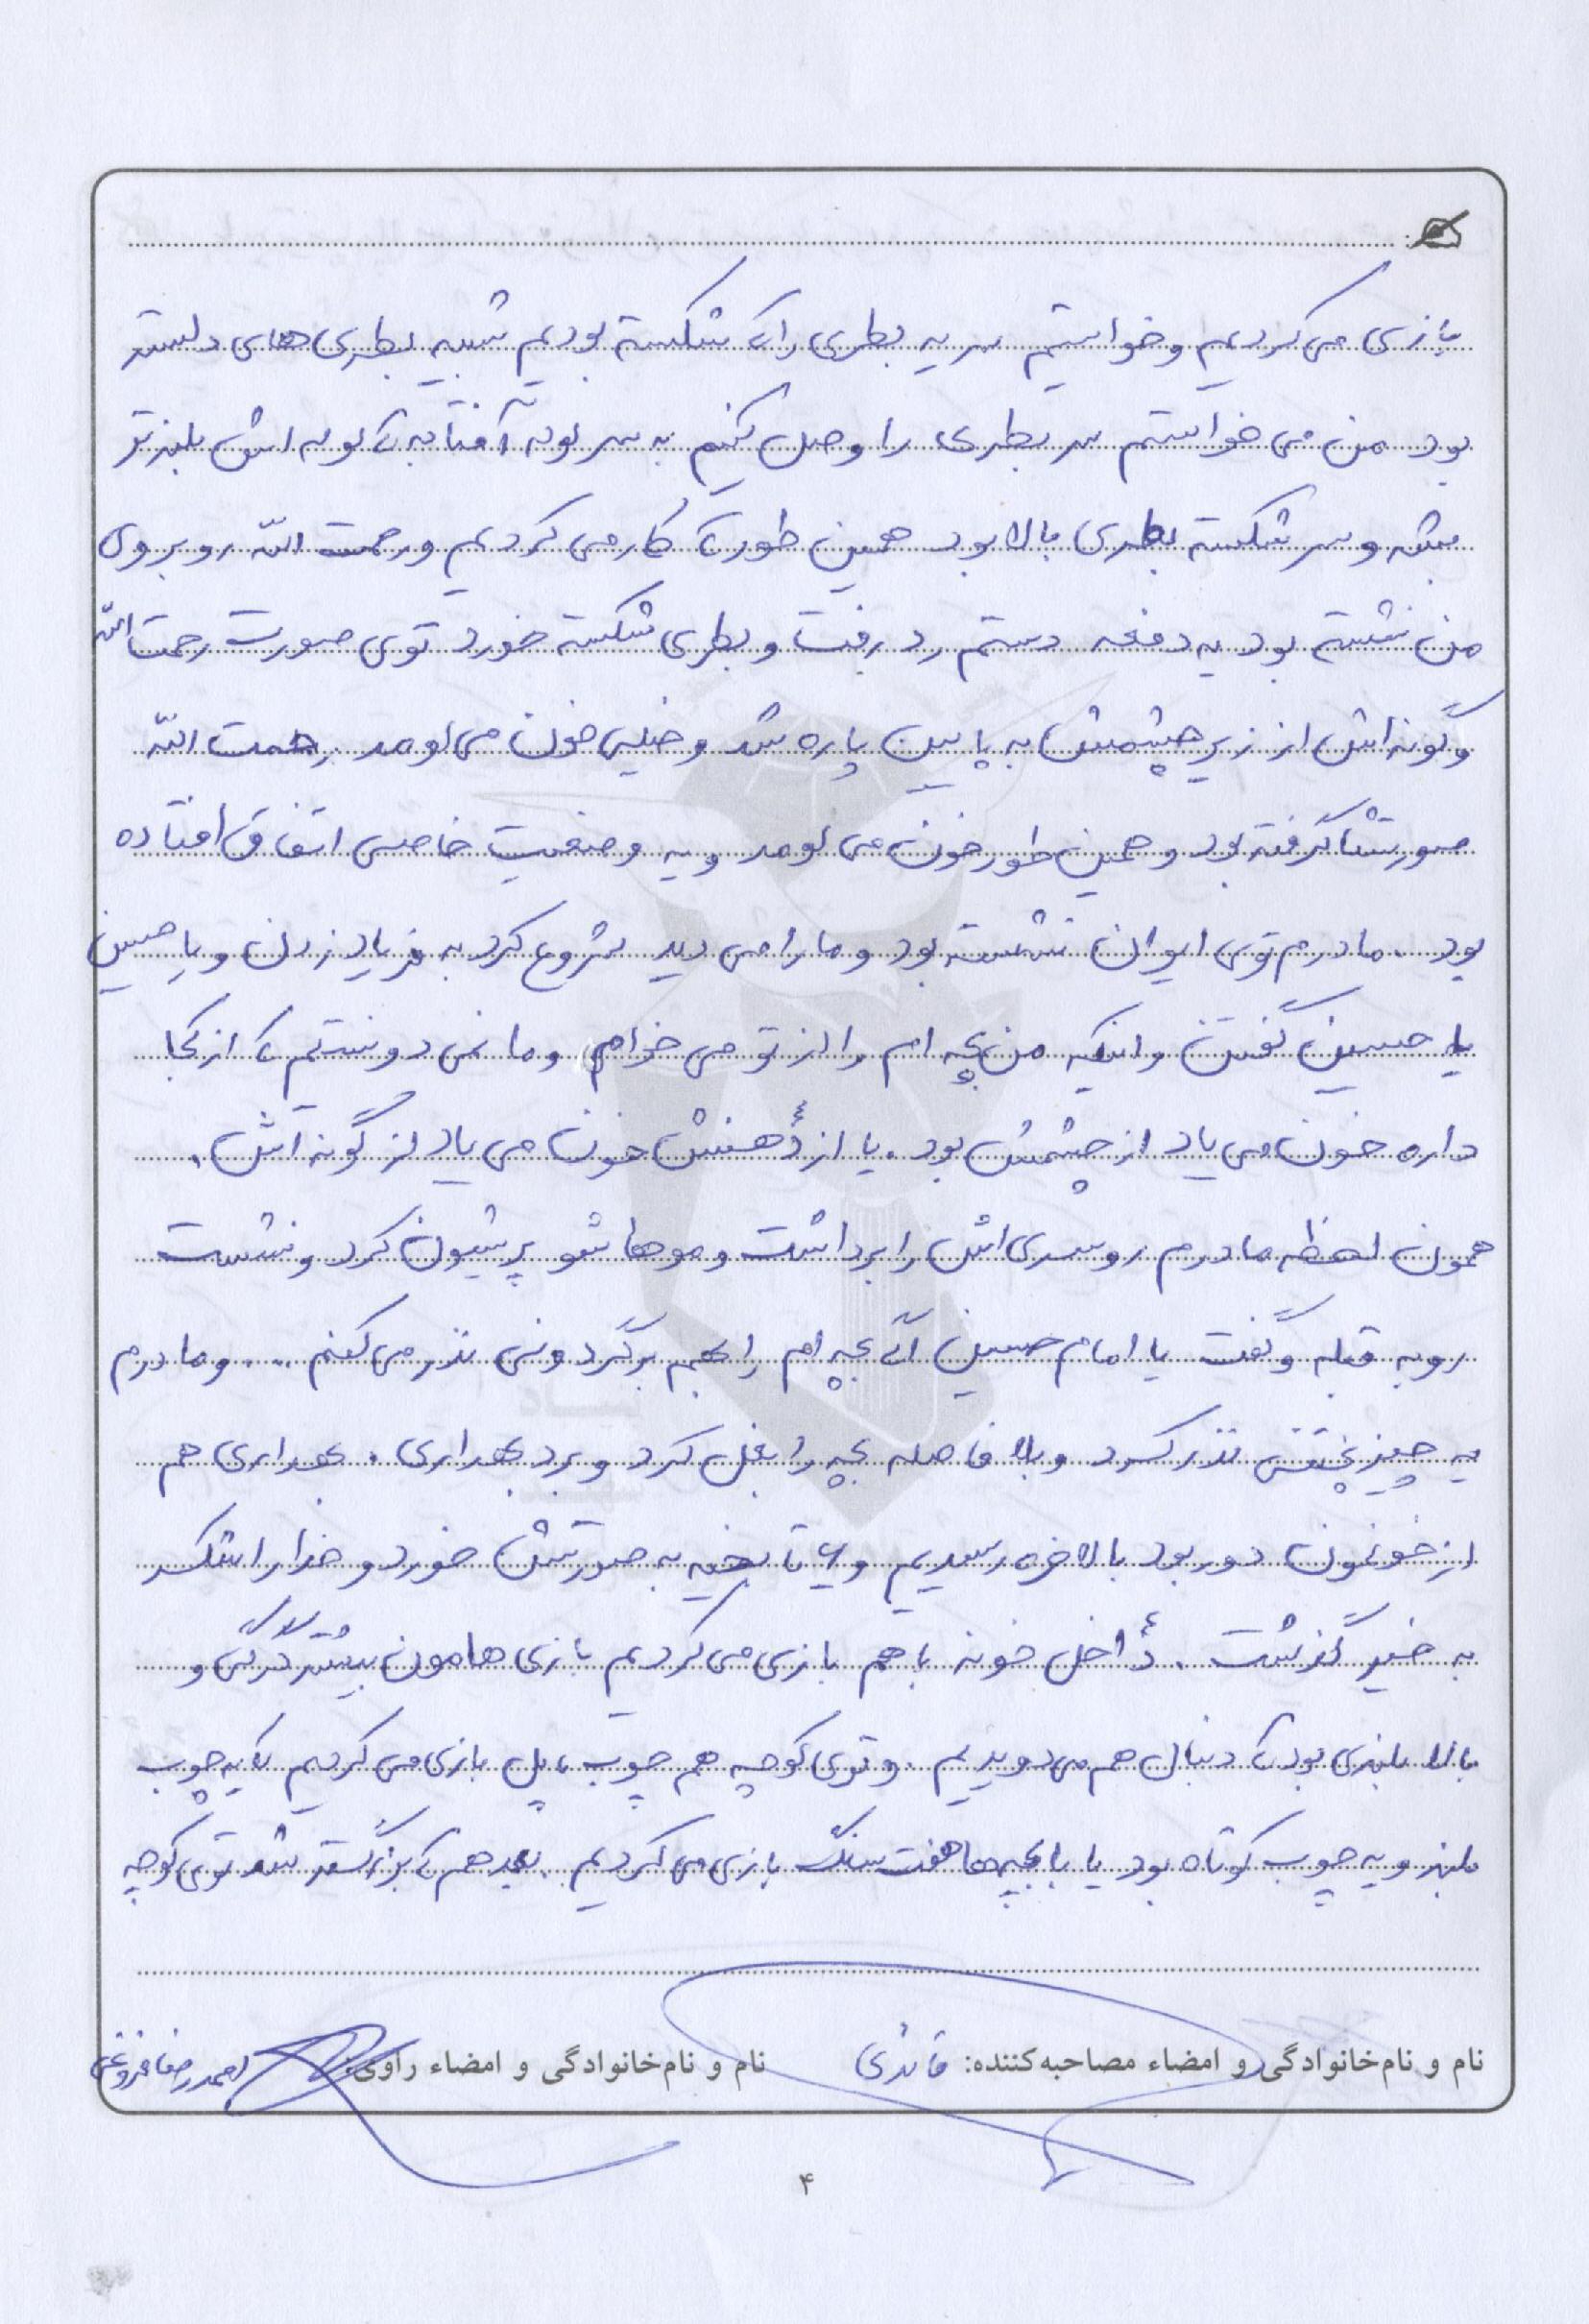 بازی می‌کردیم و خواستیم سر یه بطری را که شکسته بودیم شبیه بطری‌های دلستر
بود من می‌خواستم سر بطری را وصل کنیم به سر لوله آفتابه که لوله‌اش بلندتر
بشه و سر شکسته بطری بالا بود همین طور که کار می‌کردیم و رحمت الله روبروی
من نشسته بود یه دفعه دستم در رفت و بطری شکسته خورد توی صورت رحمت الله
و گونه‌اش از زیر چشمش به پایین پاره شد و خیلی خون می‌اومد رحمت الله
صورتشا گرفته بود و همین طور خون می‌اومد و یه وضعیت خاصی اتفاق افتاده
بود. مادرم توی ایوان نشسته بود و ما را می‌دید شروع کرد به فریاد زدن و یا حسین
یا حسین گفتن و اینکه من بچه‌ام را از تو می‌خوام و ما نمی‌دونستیم که از کجا
داره خون می‌یاد از چشمش بود. یا از دهنش خون می‌یاد از گونه‌اش.
همون لحظه مادرم روسری‌اش را برداشت و موهاشو پریشون کرد و نشست
رو به قبله و گفت یا امام حسین اگه بچه‌ام را بهم برگردونی نذر می‌کنم ... و مادرم
یه چیز پختنی نذر کرد و بلافاصله بچه را بغل کرد و برد بهداری. بهداری هم
از خونمون دور بود بالاخره رسیدیم و ۶ تا بخیه به صورتش خورد و خدا را شکر
به خیر گذشت. داخل خونه با هم بازی می‌کردیم بازی‌هامون بیشتر گرگی و
بالا بلندی بود که دنبال هم می‌دویدیم. و توی کوچه هم چوب پل بازی می‌کردیم که یه چوب
بلند و یه چوب کوتاه بود یا با بچه‌ها هفت سنگ بازی می‌کردیم. بعد هم که بزرگتر شد توی کوچه
نام و نام‌خانوادگی و امضاء مصاحبه‌کننده: قائدی نام و نام‌خانوادگی و امضاء راوی: احمدرضا فروغی
۴